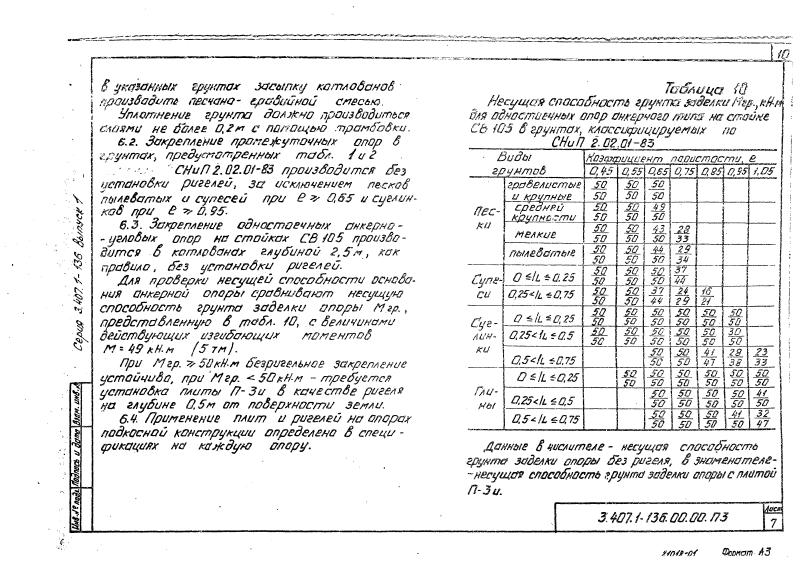 10
в указанных грунтах засыпку котлованов
производить песчано-гравийной смесью.
Уплотнение грунта должно производиться
слоями не более 0,2м с помощью трамбовки.
6.2. Закрепление промежуточных опор в
грунтах, предусмотренных табл. 1 и 2
СНиП 2.02.01-83 производится без
установки ригелей, за исключением песков
пылеватых и супесей при e ⩾ 0,65 и суглин-
ков при e ⩾ 0,95.
6.3. Закрепление одностоечных анкерно-
-угловых опор на стойках СВ 105 произво-
дится в котлованах глубиной 2,5м, как
правило, без установки ригелей.
Для проверки несущей способности основа-
ния анкерной опоры сравнивают несущую
способность грунта заделки опоры Мгр.,
представленную в табл. 10, с величинами
действующих изгибающих моментов
М = 49 кН·м (5 тм).
При Мгр. ⩾ 50кН·м безригельное закрепление
устойчиво, при Мгр. < 50кН·м – требуется
установка плиты П-3и в качестве ригеля
на глубине 0,5м от поверхности земли.
6.4. Применение плит и ригелей на опорах
подкосной конструкции определено в специ-
фикациях на каждую опору.
Таблица 10
Несущая способность грунта заделки Мгр., кН·м
для одностоечных опор анкерного типа на стойке
СВ 105 в грунтах, классифицируемых по
СНиП 2.02.01-83
Виды грунтов Коэффициент пористости, e
0,45 0,55 0,65 0,75 0,85 0,95 1,05
Пески гравелистые и крупные 50/50 50/50 50/50
средней крупности 50/50 50/50 49/50
мелкие 50/50 50/50 43/50 28/33
пылеватые 50/50 50/50 44/50 29/34
Супеси 0 ≤ IL ≤ 0,25 50/50 50/50 50/50 37/44
0,25 < IL ≤ 0,75 50/50 50/50 37/44 24/29 16/21
Суглинки 0 ≤ IL ≤ 0,25 50/50 50/50 50/50 50/50 50/50 50/50
0,25 < IL ≤ 0,5 50/50 50/50 50/50 50/50 50/50 30/50
0,5 < IL ≤ 0,75 50/50 50/50 41/47 28/38 23/33
Глины 0 ≤ IL ≤ 0,25 50/50 50/50 50/50 50/50 50/50 50/50
0,25 < IL ≤ 0,5 50/50 50/50 50/50 50/50 41/50
0,5 < IL ≤ 0,75 50/50 50/50 50/50 41/50 32/47
Данные в числителе – несущая способность
грунта заделки опоры без ригеля, в знаменателе–
–несущая способность грунта заделки опоры с плитой
П-3и.
3.407.1-136.00.00.ПЗ
Лист
7
Формат А3
Серия 3.407.1-136 выпуск 1
Инв.№ подл. Подпись и дата Взам. инв.№